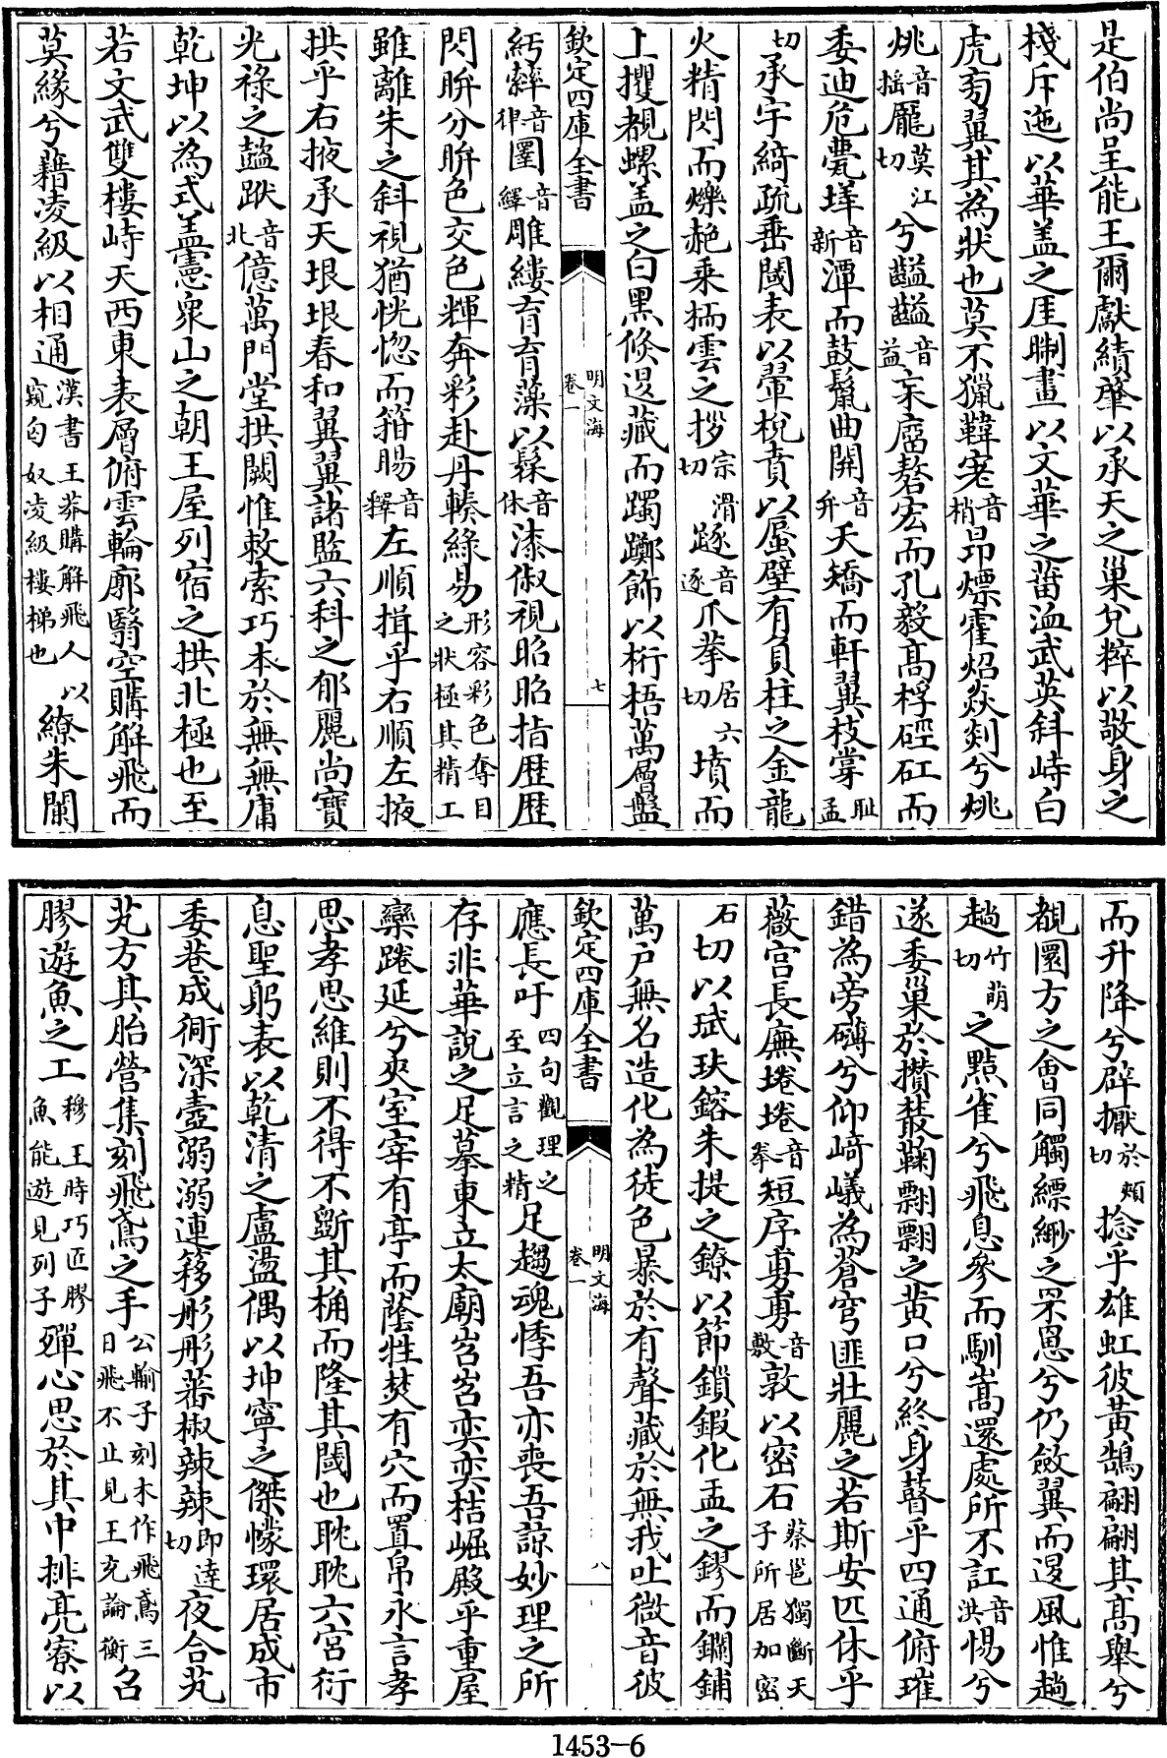 是伯尚呈能王爾獻績肇以承天之巢兌粹以敬身之
棧斥迤以華盖之厓㓡畫以文華之菑溢武英斜峙白
虎旁翼其為狀也莫不獵韓宠音梢昂熛霍炤焱剡兮烑
烑音摇厖莫江切兮齸齸音益宋廇嵍宏而孔毅髙桴硜矼而
委迪危甍垟音新潭而鼓鬛曲開音弁夭矯而軒翼枝牚恥孟
切承宇綺疏垂闥表以翬棁賁以蜃壁有負柱之金龍
火精閃而爍赩乘栭雲之拶宗滑切䟣音逐爪拳居六切墳而
上攫覩螺盖之白黒倏退藏而躅躑飾以桁梧萬層盤
欽定四庫全書
明文海
卷一
七
紆繂音律圛音繹雕縷育育藻以髹音休漆俶視昭昭指歴歴
閃眹分眹色交色輝奔彩赴丹輳緑易形容彩色奪目之狀極其精工
雖離朱之斜視猶恍惚而籍睗音釋左順揖乎右順左掖
拱乎右掖承天垠垠春和翼翼諸監六科之郁麗尚寶
光禄之䕫踄音北億萬門堂拱闕惟敕索巧本於無無庸
乾坤以為式盖憲衆山之朝王屋列宿之拱北極也至
若文武雙樓峙天西東表層俯雲輪廓翳空購解飛而
莫緣兮藉凌級以相通漢書王莽購解飛人窺匈奴凌級樓梯也以繚朱闌
而升降兮擗擫於頰切捻乎雄虹彼黄鵠翩翩其髙舉兮
覩圜方之會同觸縹緲之罘罳兮仍斂翼而退風惟趟
趟竹萌切之點雀兮飛息參而馴嵩還處所不訌音洪惕兮
遂委巢於攢藂鞠翾翾之黄口兮終身瞽乎四通俯璀
錯為旁礴兮仰﨑嶬為蒼穹匪壯麗之若斯安匹休乎
薇宫長廡埢埢音拳短序旉旉音敷敦以密石蔡邕獨斷天子所居加密
石切以珷玞鎔朱提之鐐以節鎖鍜化盂之鏐而鐧鋪
萬户無名造化為徒色㬥於有聲藏於無我吐微音彼
欽定四庫全書
明文海
卷一
八
應長吁四句觀理之至立言之精足趨魂悸吾亦喪吾諒妙理之所
存非華説之足摹東立太廟岧岧奕奕桔崛殿乎重屋
欒踡延兮夾室宰有亭而蔭牲焚有穴而置帛永言孝
思孝思維則不得不斵其桷而隆其闥也眈眈六宫衍
息聖躬表以乾清之盧瀊偶以坤寧之傑㠓環居成市
委巷成衖深壼溺溺連簃彤彤蕃椒辣辣即逹切夜合芃
芃方其胎營集刻飛鳶之手公輸子刻木作飛鳶三日飛不止見王充論衡召
膠遊魚之工穆王時巧匠膠魚能遊見列子殫心思於其中排亮寮以
1453-6